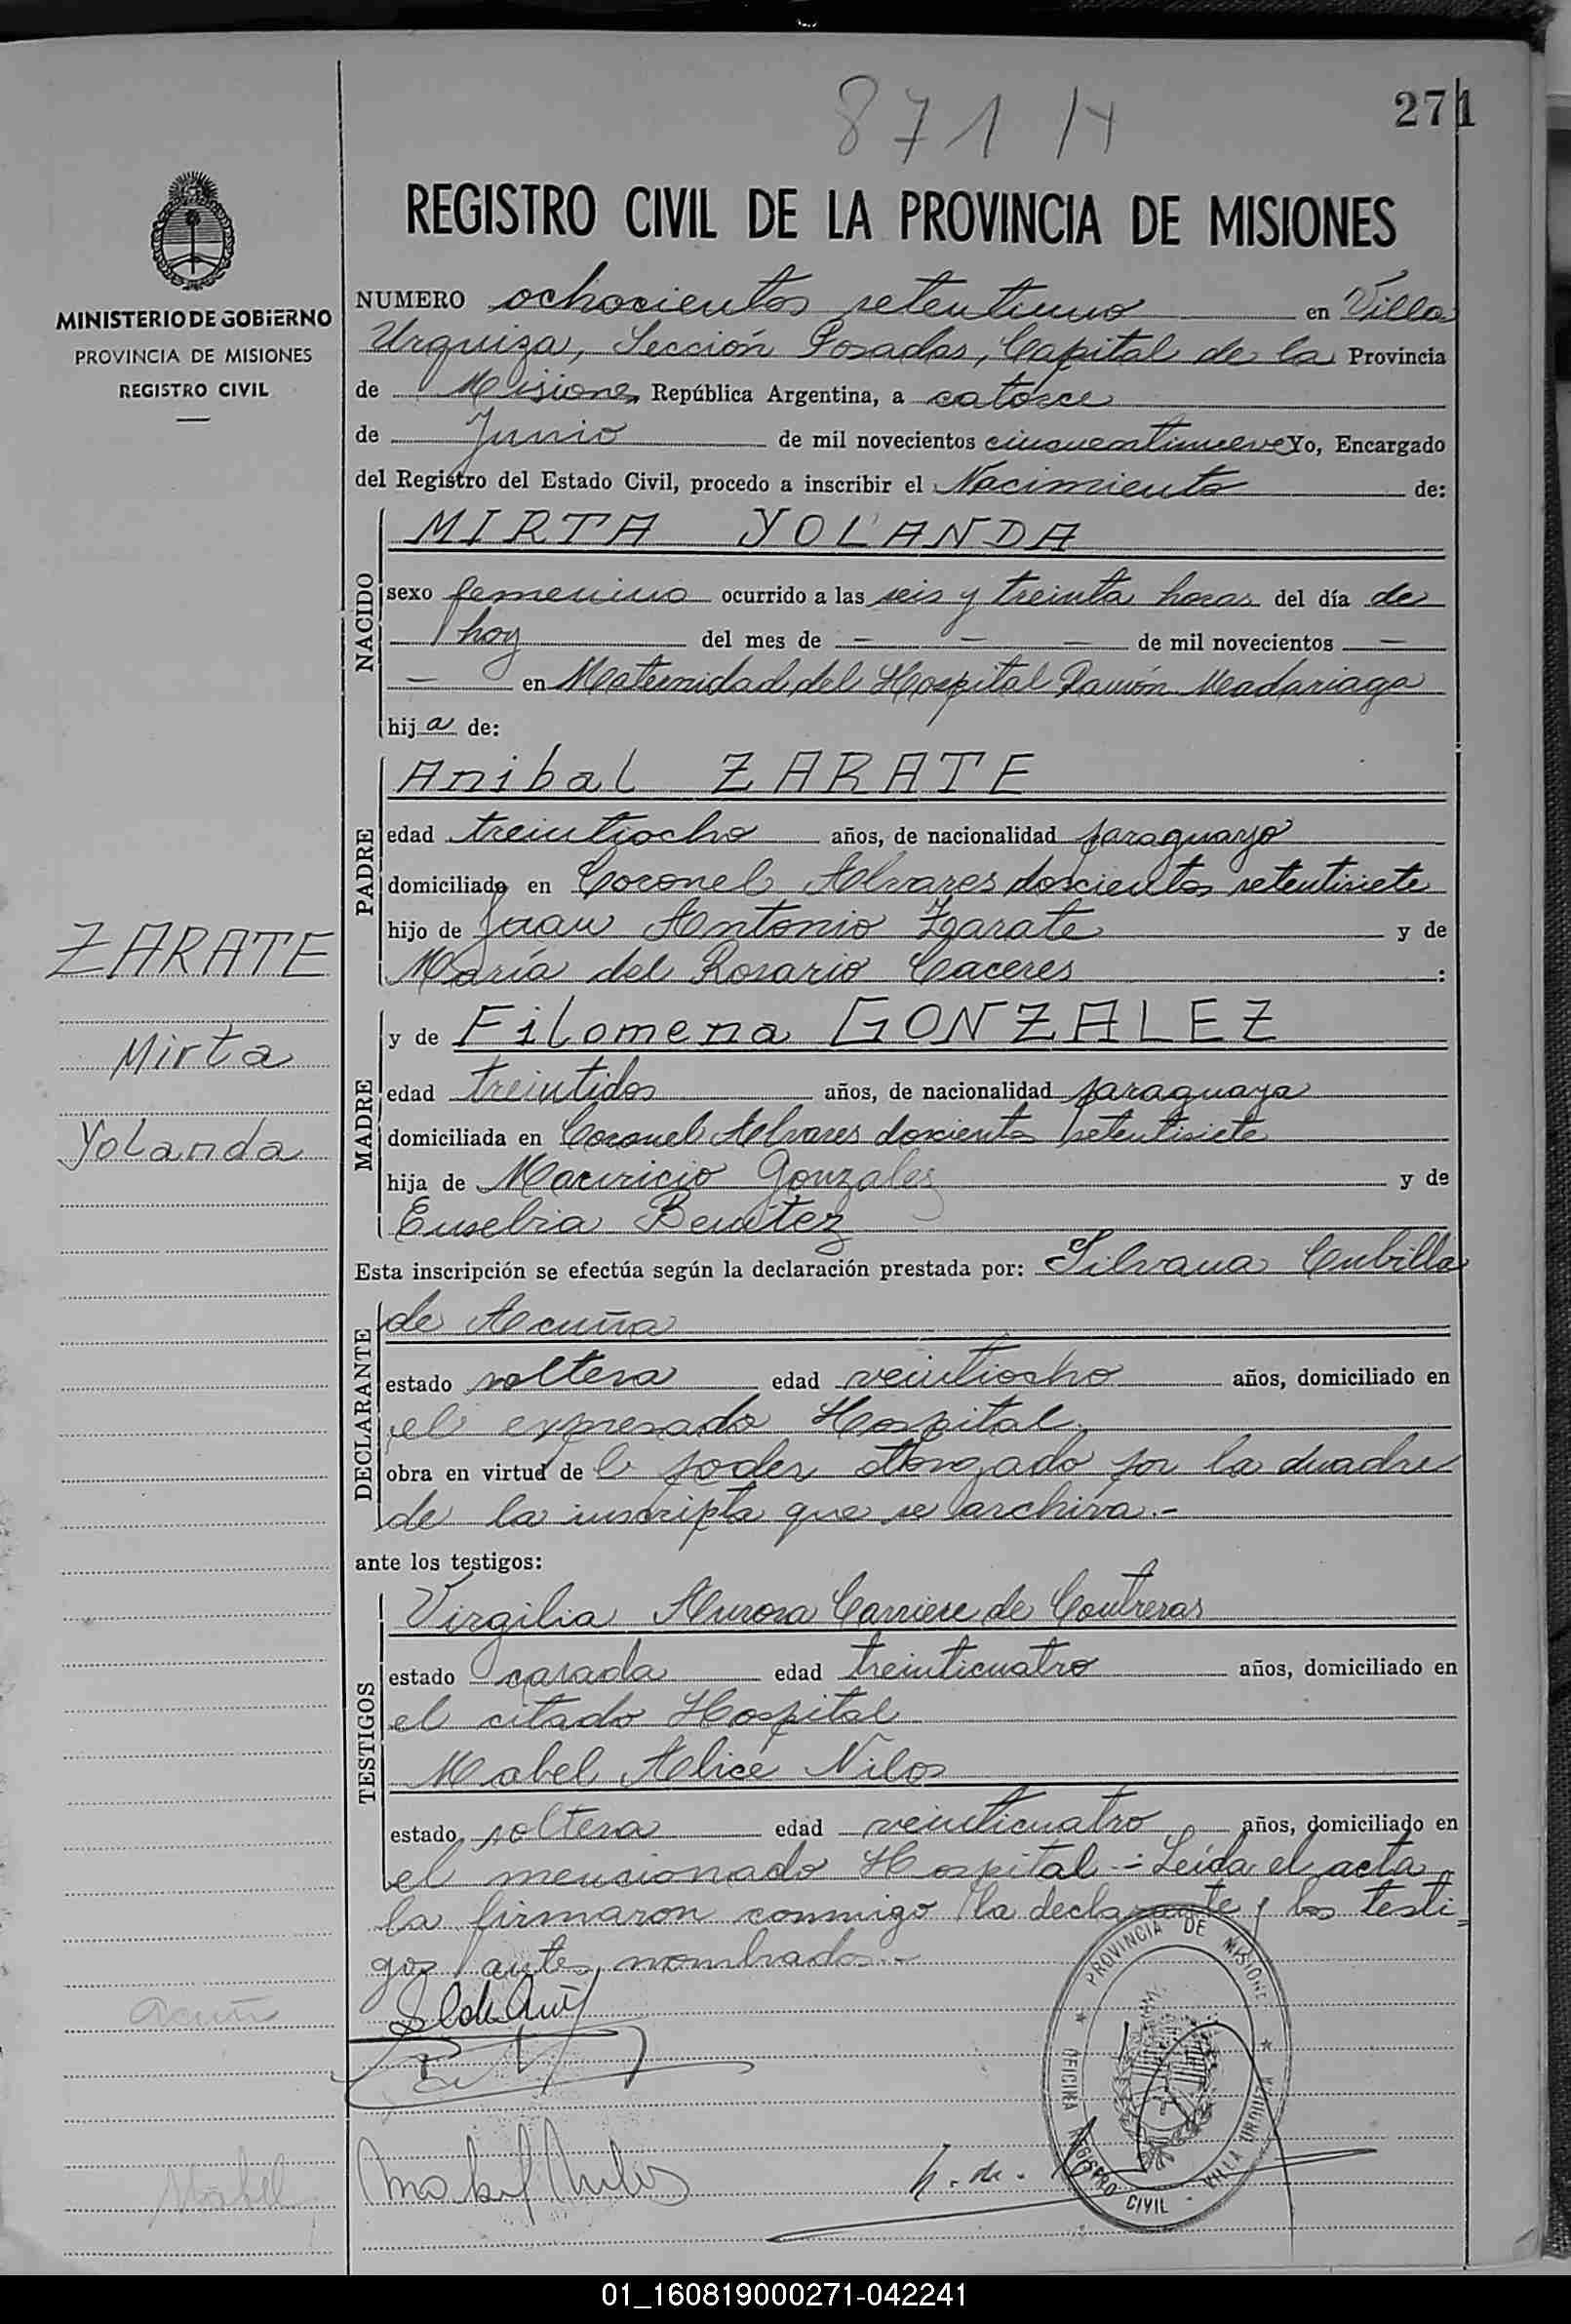 871 H
271
REGISTRO CIVIL DE LA PROVINCIA DE MISIONES
MINISTERIO DE GOBIERNO
PROVINCIA DE MISIONES
REGISTRO CIVIL
NUMERO ochocientos setentiuno en Villa
Urquiza, Sección Posadas, Capital de la Provincia
de Misiones República Argentina, a catorce
de Junio de mil novecientos cincuentinueve Yo, Encargado
del Registro del Estado Civil, procedo a inscribir el Nacimiento de:
NACIDO
MIRTA YOLANDA
sexo femenino ocurrido a las seis y treinta horas del día de
hoy del mes de — — — de mil novecientos —
— en Maternidad del Hospital Ramón Madariaga
hij a de:
PADRE
Anibal ZARATE
edad treintiocho años, de nacionalidad paraguayo
domiciliado en Coronel Alvares doscientos setentisiete
hijo de Juan Antonio Zarate y de
María del Rosario Caceres :
ZARATE
Mirta
Yolanda
MADRE
y de Filomena GONZALEZ
edad treintidos años, de nacionalidad paraguaya
domiciliada en Coronel Alvares doscientos setentisiete
hija de Mauricio Gonzalez y de
Eusebia Benitez
Esta inscripción se efectúa según la declaración prestada por: Silvana Cubilla
DECLARANTE
de Acuña
estado soltera edad veintiocho años, domiciliado en
el expresado Hospital
obra en virtud de l poder otorgado por la madre
de la inscripta que se archiva.-
ante los testigos:
TESTIGOS
Virgilia Aurora Carriere de Contreras
estado casada edad treinticuatro años, domiciliado en
el citado Hospital
Mabel Alice Nilos
estado soltera edad veinticuatro años, domiciliado en
el mencionado Hospital - Leída el acta
la firmaron conmigo la declarante y los testi-
gos antes nombrados.-
PROVINCIA DE MISIONES
OFICINA REGISTRO CIVIL - VILLA URQUIZA
Mabel
01_160819000271-042241